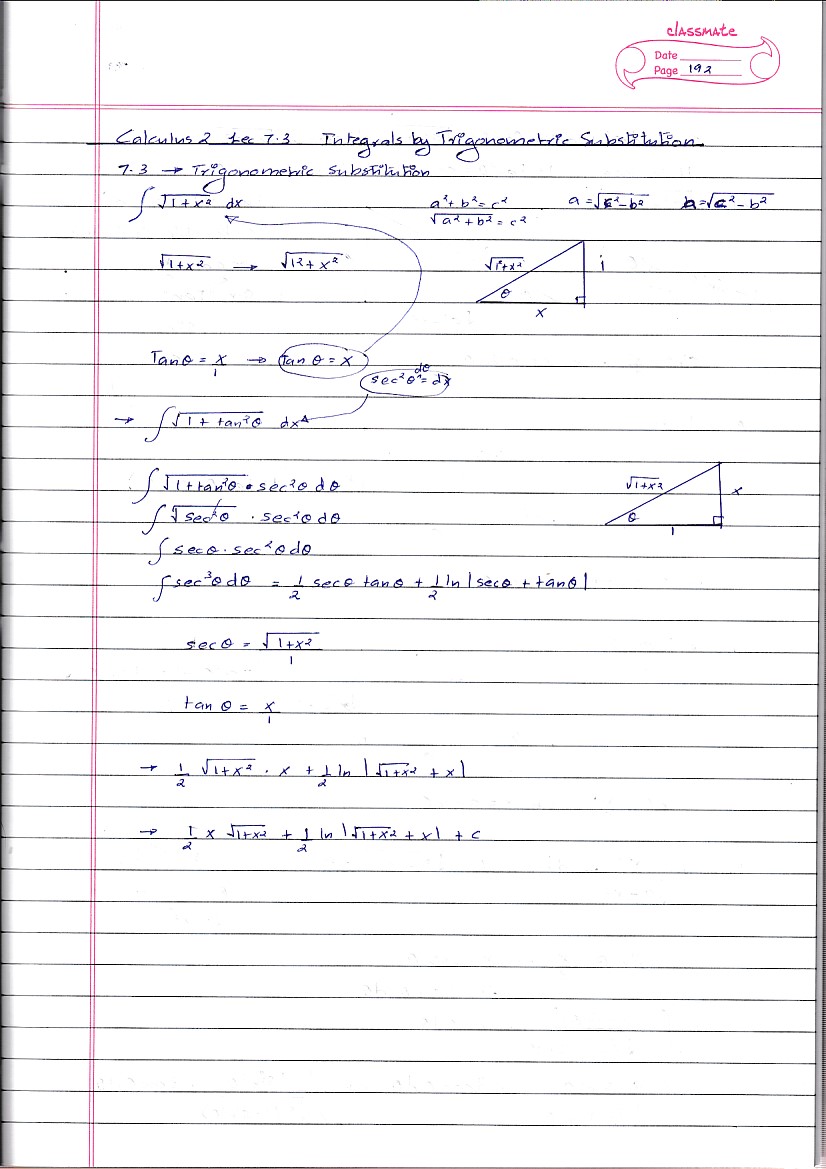 classmate
Date
Page 192
Calculus 2 Lec 7.3 Integrals by Trigonometric Substitution
7.3 → Trigonometric Substitution
∫ √(1+x²) dx a²+b²=c² a=√(c²-b²) b=√(c²-b²)
√(a²+b²) = c²
√(1+x²) → √(1²+x²)
√(1+x²) 1
θ
x
Tanθ = x/1 → tan θ = x
sec²θ dθ = dx
→ ∫ √(1+tan²θ) dx
∫ √(1+tan²θ) • sec²θ dθ
√(1+x²) x
θ
1
∫ √(sec²θ) · sec²θ dθ
∫ secθ · sec²θ dθ
∫ sec³θ dθ = 1/2 secθ tanθ + 1/2 ln|secθ + tanθ|
secθ = √(1+x²)/1
tan θ = x/1
→ 1/2 √(1+x²) · x + 1/2 ln |√(1+x²) + x|
→ 1/2 x √(1+x²) + 1/2 ln |√(1+x²) + x| + c